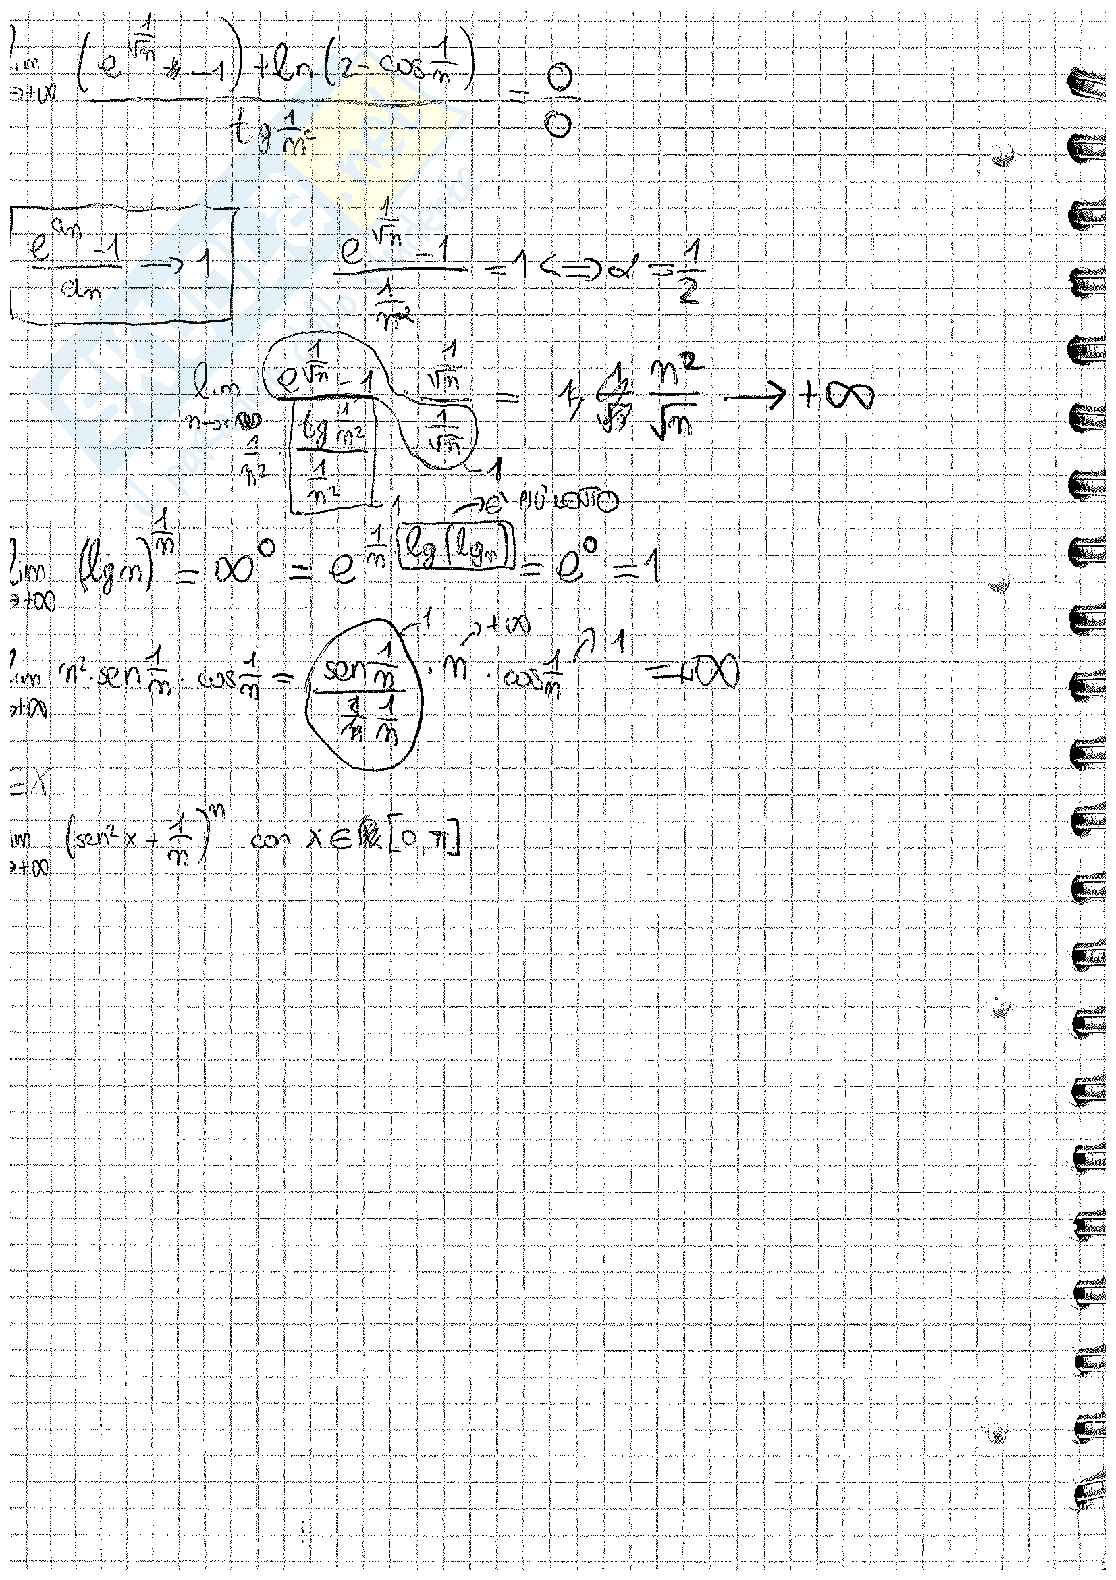 lim n→+∞ ((e^(1/√n) - 1) + ln(2 - cos 1/n)) / (tg 1/n²) = 0/0
(e^(an) - 1)/an → 1   (e^(1/√n) - 1)/(1/n^2) = 1 <=> α = 1/2
lim n→+∞ (e^(1/√n) - 1)/(1/n² · (tg 1/n²)/(1/n²)) · (1/√n)/(1/√n) = 1 · n²/√n → +∞
1
1
→ è PIÙ LENTO
lim n→+∞ (lg n)^(1/n) = ∞^0 = e^(1/n lg(lg n)) = e^0 = 1
lim n→+∞ n² · sen 1/n · cos 1/n = (sen 1/n)/(1/n) · n · cos 1/n = +∞
1 → +∞ → 1
= x
lim n→+∞ (sen² x + 1/n)^n con x ∈ [0, π]